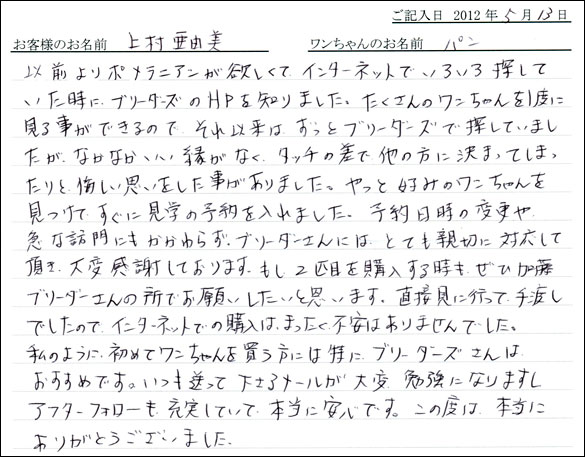 ご記入日 2012年5月13日
お客様のお名前 上村亜由美 ワンちゃんのお名前 パン
以前よりポメラニアンが欲しくて、インターネットでいろいろ探して
いた時に、ブリーダーズのHPを知りました。たくさんのワンちゃんを1度に
見る事ができるので、それ以来は、ずっとブリーダーズで探していまし
たが、なかなかいい縁がなく、タッチの差で他の方に決まってしまっ
たりと、悔しい思いをした事がありました。やっと好みのワンちゃんを
見つけて、すぐに見学の予約を入れました。予約日時の変更や、
急な訪問にもかかわらず、ブリーダーさんには、とても親切に対応して
頂き、大変感謝しております。もし2匹目を購入する時も、ぜひ加藤
ブリーダーさんの所でお願いしたいと思います。直接見に行って、手渡し
でしたので、インターネットでの購入は、まったく不安はありませんでした。
私のように、初めてワンちゃんを買う方には特に、ブリーダーズさんは、
おすすめです。いつも送って下さるメールが大変勉強になりますし
アフターフォローも充実していて、本当に安心です。この度は、本当に
ありがとうございました。